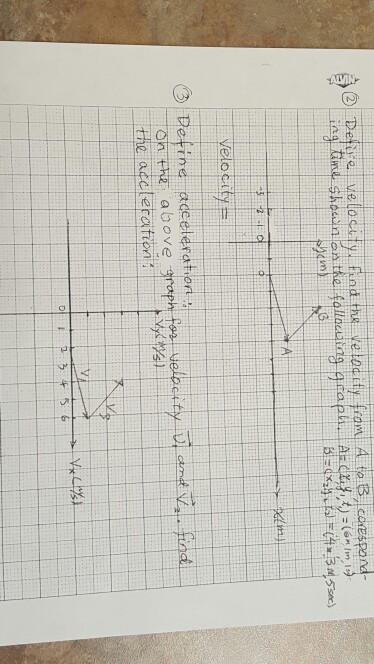 ② Define velocity. Find the velocity from A to B, correspond-
ing time shown on the following graph. A=(x₁,y₁,t₁)=(6m,1m,1s)
B=(x₂,y₂,t₂)=(4m,3m,5sec)
y(m)
B
A
-3 -2 -1 0
0
x(m)
velocity=
③ Define acceleration:
On the above graph for velocity V⃗₁ and V⃗₂. find
the acceleration:
Vy(m/s)
V₁
V₂
0 1 2 3 4 5 6
Vx(m/s)